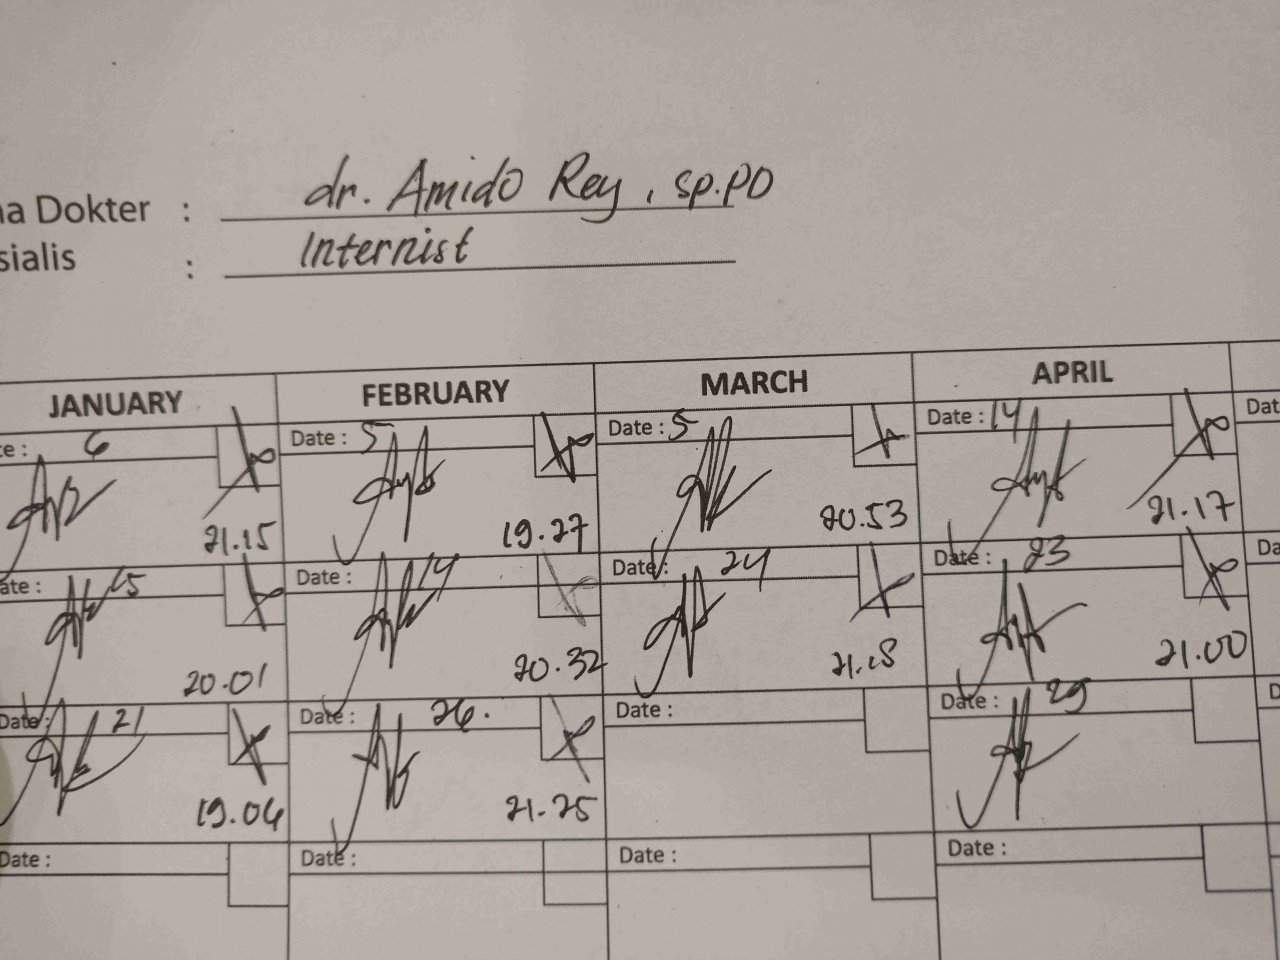 na Dokter : dr. Amido Rey, sp.PD
sialis : Internist
JANUARY FEBRUARY MARCH APRIL
te : 6 Date : 5 Date : 5 Date : 14 Dat
21.15 19.27 20.53 21.17
ate : 15 Date : 14 Date : 24 Date : 23 Da
20.01 20.32 21.18 21.00
Date : 21 Date : 26. Date : Date : 29 D
19.04 21.25
Date : Date : Date : Date :